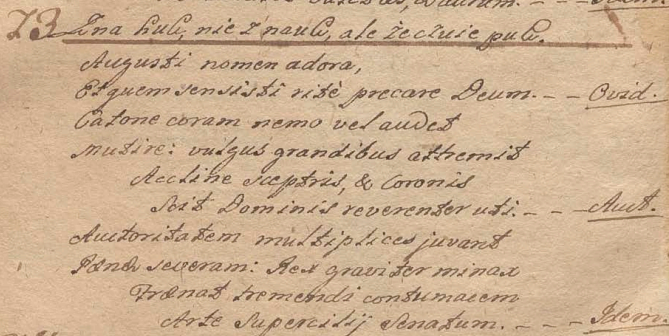 73 Zna hulc, nie z nauk, ale że czuie pulc.
Augusti nomen adora,
Et quem sensisti ritè precare Deum. - - Ovid.
Catone coram nemo vel audet
Mutire: vulgus grandibus attremit
Accline sceptris, & Coronis
Scit Dominis reverenter uti. - - - Auct.
Auctoritatem multiplices juvant
severam: Rex graviter minax
Frænat tremendi contumacem
Arte Supercilij Senatum. - - - - Idem.